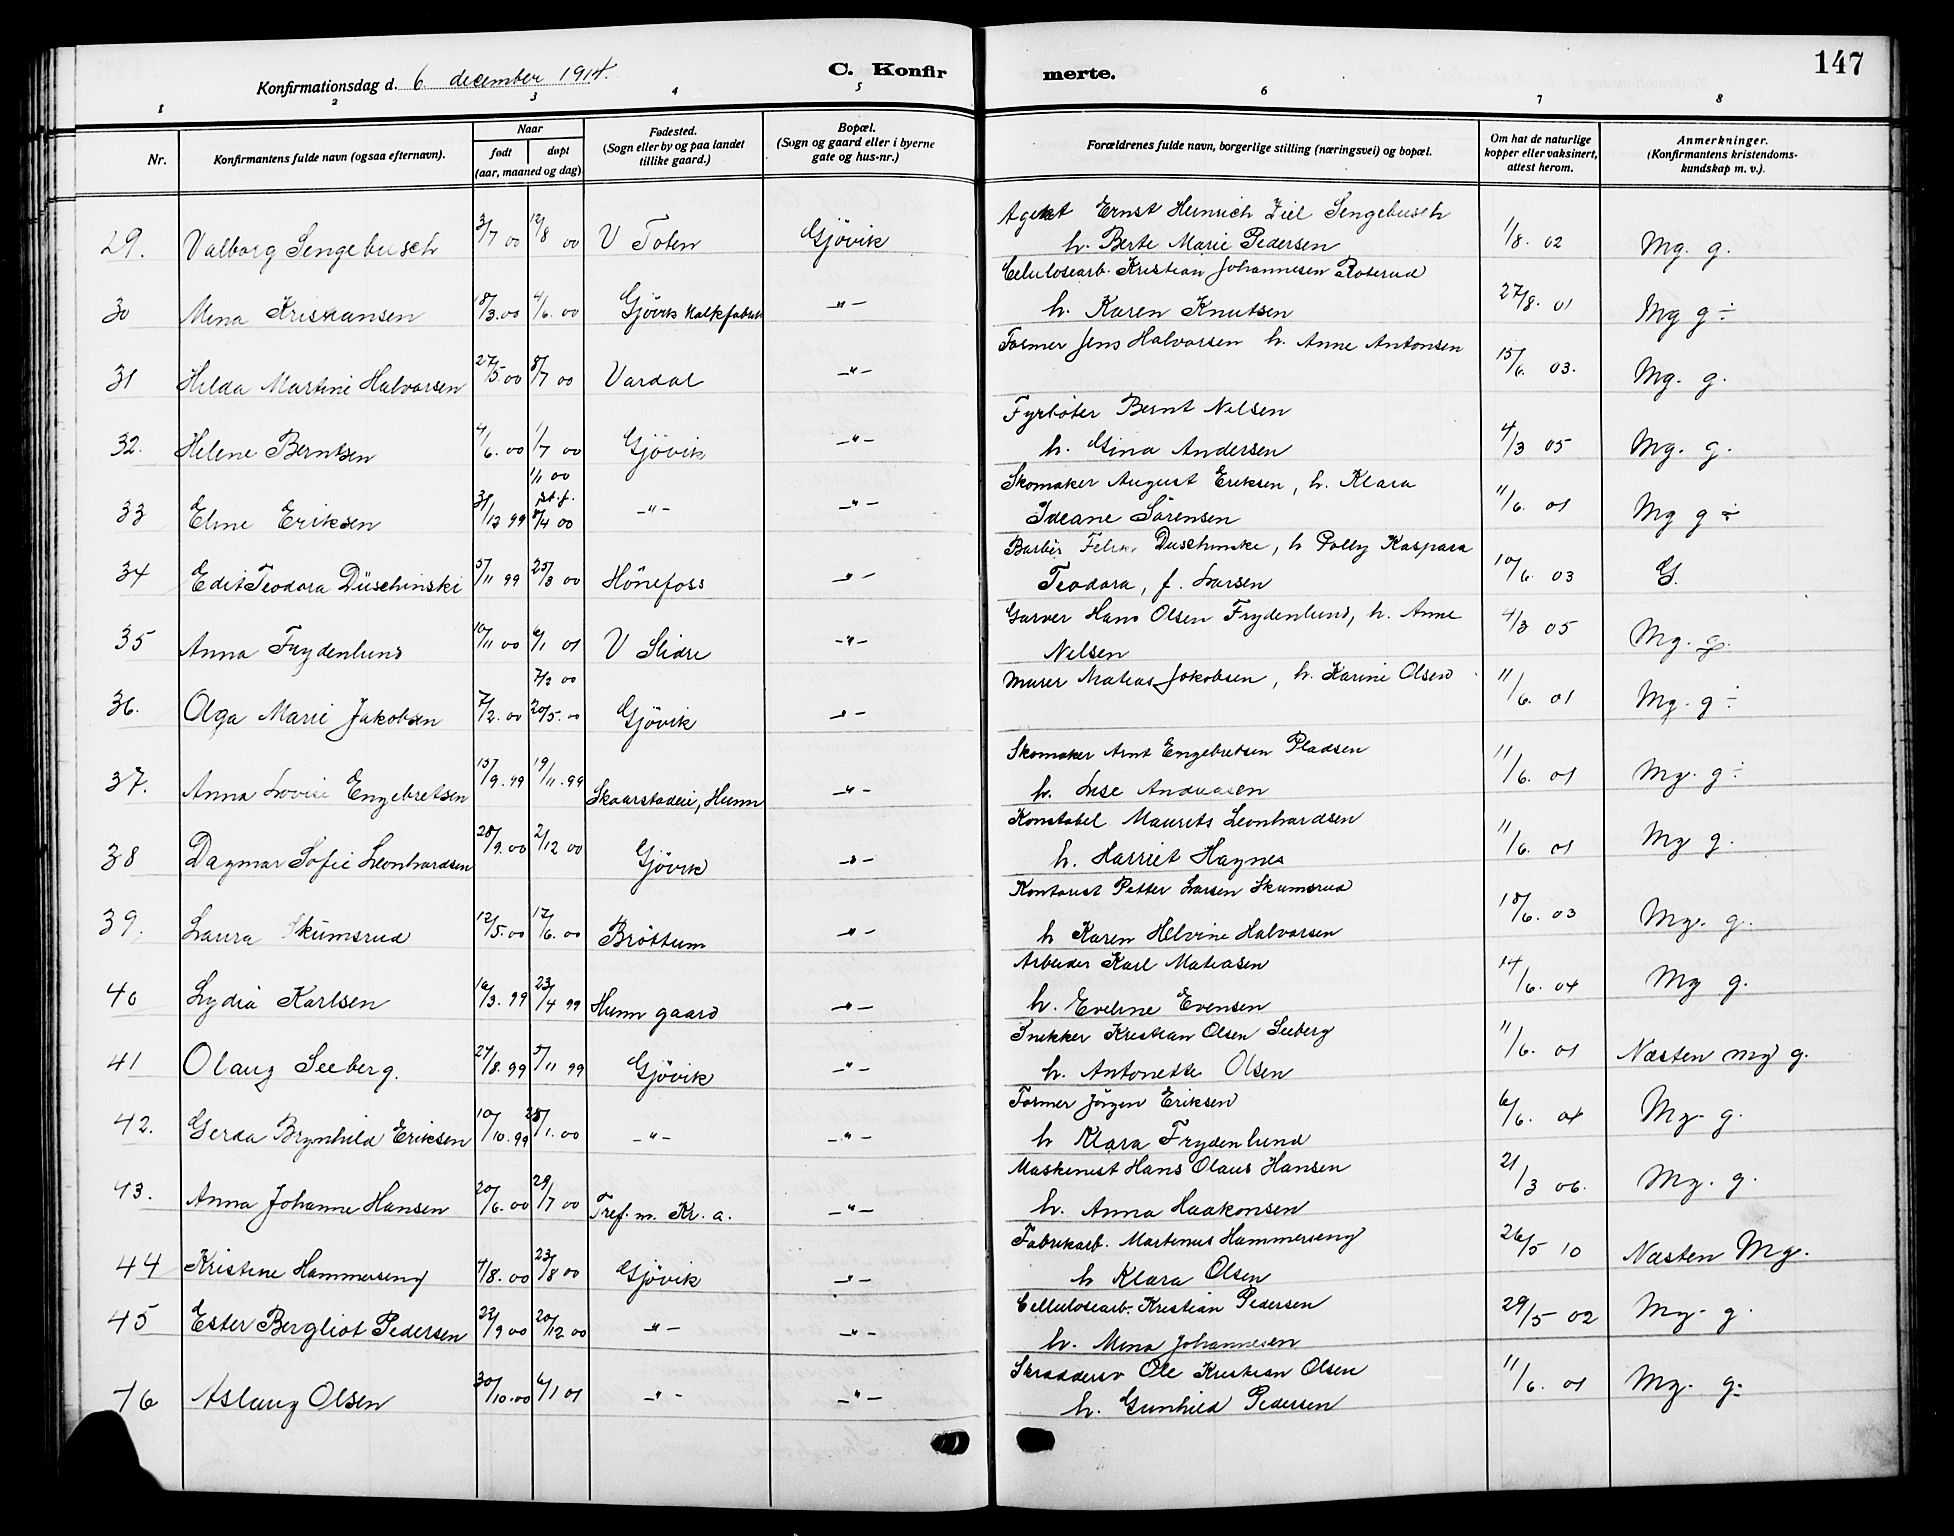 147
Konfirmationsdag d. 6 december 1914. C. Konfirmerte.
1 2 3 4 5 6 7 8
Nr. | Konfirmantens fulde navn (ogsaa efternavn). | Naar født døpt (aar, maaned og dag) | Fødested. (Sogn eller by og paa landet tillike gaard.) | Bopæl. (Sogn og gaard eller i byerne gate og hus-nr.) | Forældrenes fulde navn, borgerlige stilling (næringsvei) og bopæl. | Om hat de naturlige kopper eller vaksinert, attest herom. | Anmerkninger. (Konfirmantens kristendomskundskap m. v.).
29. Valborg Sengebusch 3/7 00 12/8 00 V Toten Gjövik Agent Ernst Heinrich Ziel Sengebusch h. Berte Marie Pedersen 1/8. 02 Mg. g.
30 Mina Kristiansen 18/3. 00 4/6. 00 Gjövik Kalkfabrik -"- Celulosearb. Kristian Johannesen Roterud h. Karen Knutsen 27/8. 01 Mg g ÷
31 Hilda Martine Halvorsen 27/5. 00 8/7 00 Vardal -"- Former Jens Halvorsen h. Anne Antonsen 15/6. 03. Mg. g.
32. Helene Berntsen 4/6. 00 1/7 00 Gjövik -"- Fyrböter Bernt Nilsen h. Gina Andersen 4/3 05 Mg. g.
33 Eline Eriksen 31/12 99 1/1 00 st. f. 8/4 00 -"- -"- Skomaker August Eriksen, h. Klara Ideane Sörensen 11/6. 01 Mg g ÷
34 Edit Teodora Düschinski 5/11 99 25/3 00 Hönefoss -"- Barbér Felix Duschinske, h Polly Kaspara Teodora, f. Larsen 10/6. 03 G.
35 Anna Frydenlund 10/11 00 6/1 01 V Slidre -"- Garver Hans Olsen Frydenlund, h. Anne Nilsen 4/3 05 Mg. g.
36. Olga Marie Jakobsen 7/2. 00 7/2 00 20/5. 00 Gjövik -"- Murer Matias Jakobsen, h. Karine Olsen 11/6. 01 Mg. g ÷
37. Anna Lovise Engebretsen 15/9. 99 19/11. 99 Skaarstadeie, Hunn -"- Skomaker Arnt Engebretsen Pladsen h. Lise Andreasen 11/6. 01 Mg. g ÷
38 Dagmar Sofie Leonhardsen 28/9. 00 2/12 00 Gjövik -"- Konstabel Maurits Leonhardsen h. Harriet Haynes 11/6. 01 Mg g.
39. Laura Skümsrud 12/5. 00 17/6. 00 Bröttum -"- Kontorist Petter Larsen Skumsrud h Karen Helvine Halvorsen 18/6. 03 Mg. g.
40 Lydia Karlsen 16/3. 99 23/4 99 Hunn gaard -"- Arbeider Karl Matiasen h. Eveline Evensen 14/6. 04 Mg g.
41 Olaug Seeberg. 27/8. 99 5/11 99 Gjövik -"- Snekker Kristian Olsen Seeberg h. Antonette Olsen 11/6. 01 Næsten mg g.
42. Gerda Brynhild Eriksen 10/10. 99 28/1. 00 -"- -"- Former Jörgen Eriksen h Klara Frydenlund 6/6. 04 Mg. g.
43. Anna Johanne Hansen 20/6. 00 29/7 00 Tref. m. Kr. a. -"- Maskinist Hans Olaus Hansen h. Anna Haakonsen 21/3 06. Mg. g.
44 Kristine Hammerseng 4/8. 00 23/8 00 Gjövik -"- Fabrikarb. Martinus Hammerseng h Klara Olsen 26/5 10 Næsten Mg.
45 Ester Bergliot Pedersen 22/9 00 20/12 00 -"- -"- Cellulosearb. Kristian Pedersen h. Mina Johannesen 29/5 02 Mg. g.
46 Aslaug Olsen 30/10. 00 6/1 01 -"- -"- Skrædderev Ole Kristian Olsen h. Gunhild Pedersen 11/6. 01 Mg. g.